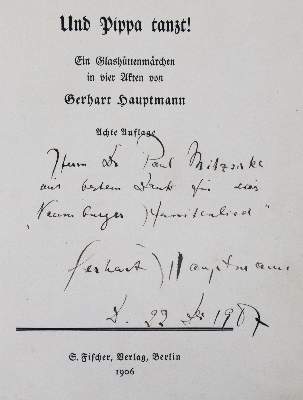 Und Pippa tanzt!
Ein Glashüttenmärchen
in vier Akten von
Gerhart Hauptmann
Achte Auflage
Herrn Dr Paul Mitzschke
mit bestem Dank für das
"Naumburger Hussitenlied"
Gerhart Hauptmann
D. 22 Dez 1907
S. Fischer, Verlag, Berlin
1906